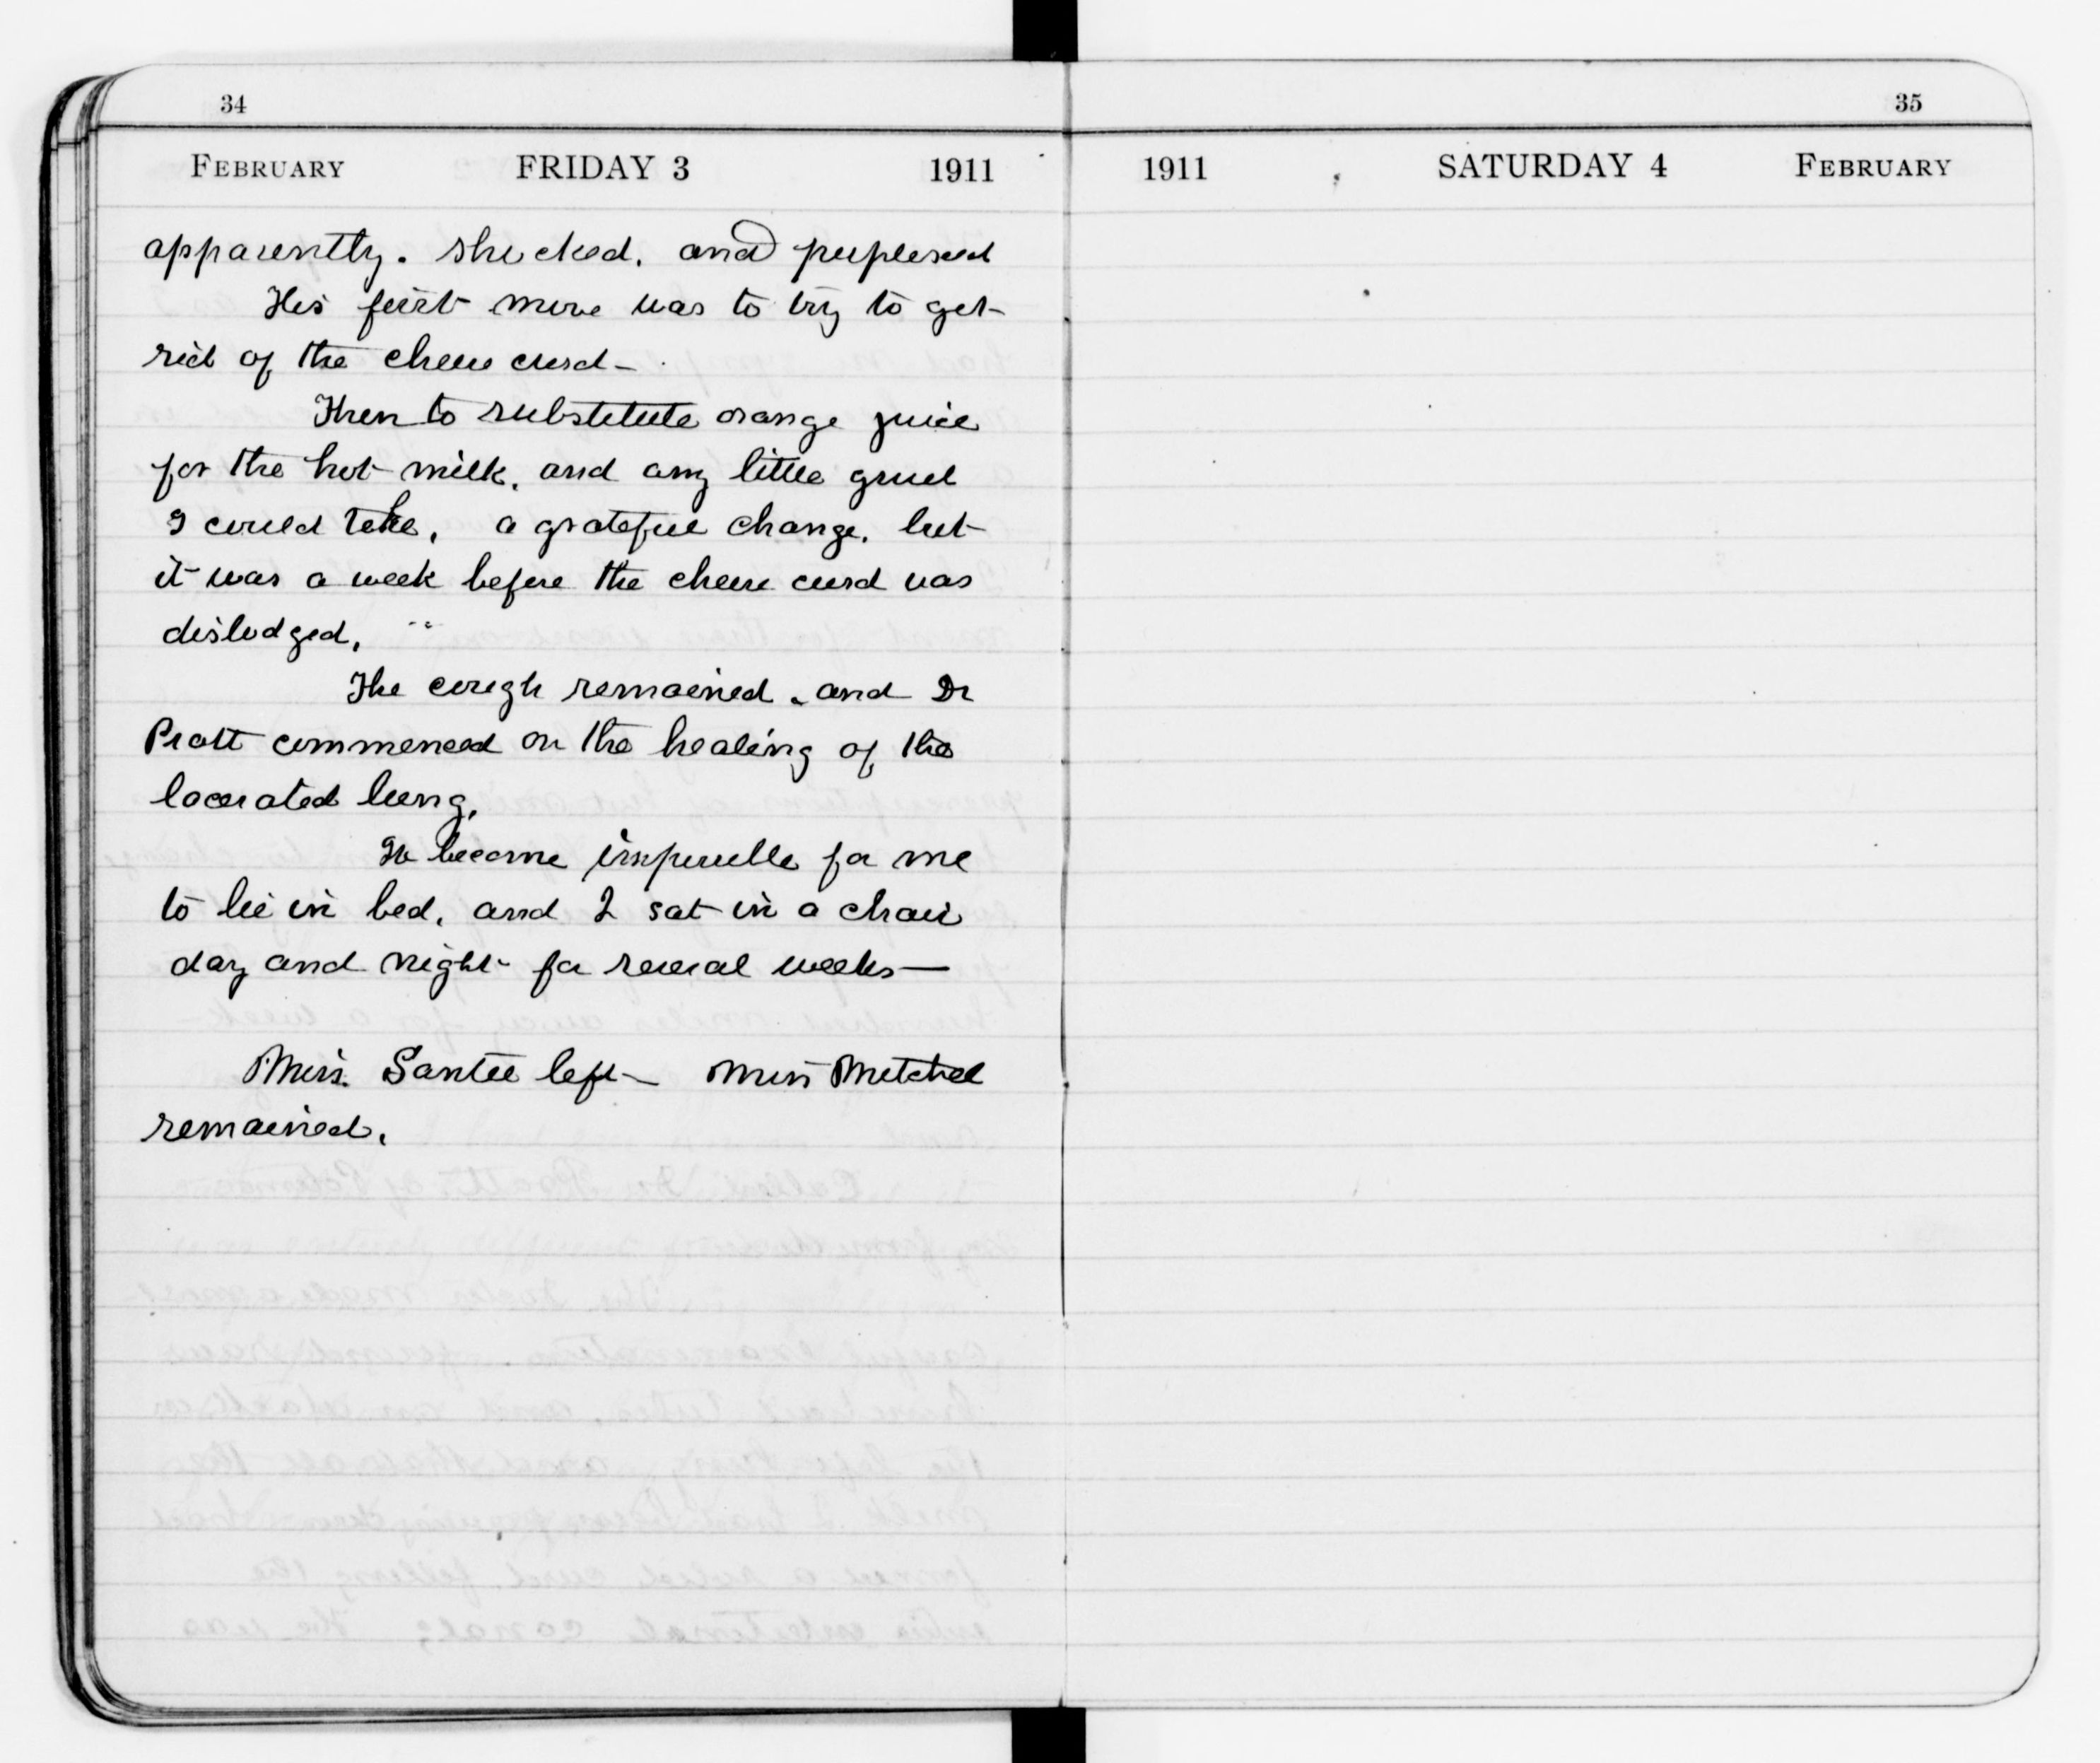 34
FEBRUARY FRIDAY 3 1911
apparently. shocked, and perplexed
His first move was to try to get
rid of the cheese curd –
Then to substitute orange juice
for the hot milk, and any little gruel
I could take, a grateful change, but
it was a week before the cheese curd was
dislodged,
The cough remained, and Dr
Pratt commenced on the healing of the
lacerated lung,
It became impossible for me
to lie in bed, and I sat in a chair
day and night for several weeks —
Miss. Santee left – Miss Mitchel
remained.
35
1911 SATURDAY 4 FEBRUARY